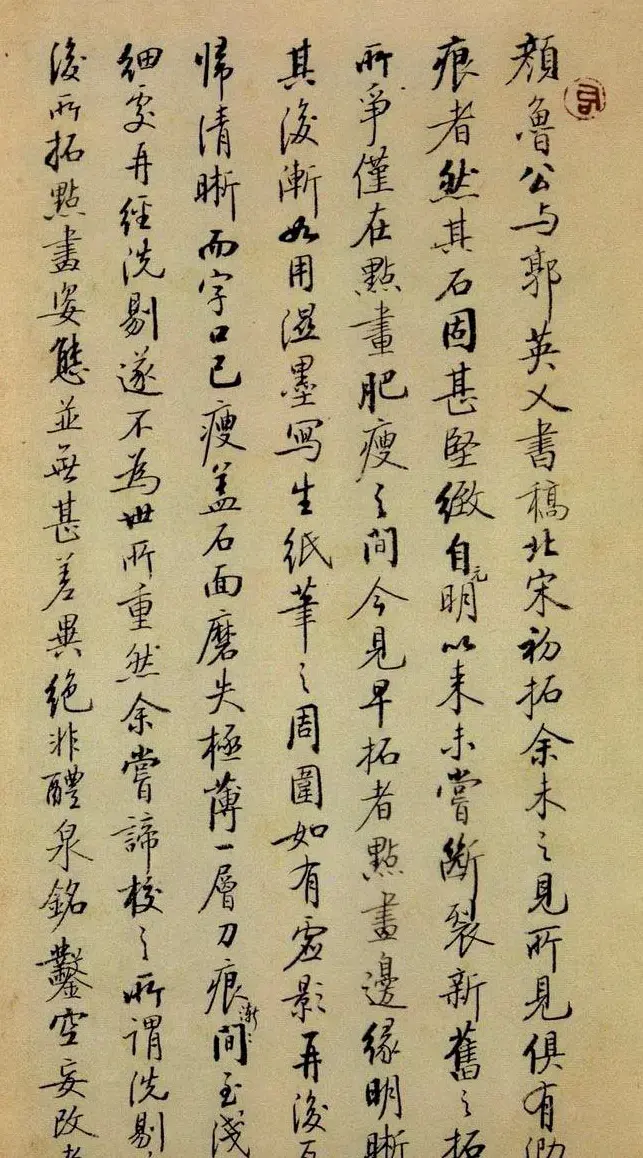 顔魯公与郭英乂書稿北宋初拓余未之見所見俱有泐
痕者然其石固甚堅緻自元明以来未嘗斷裂新舊之拓
所爭僅在點畫肥瘦之間今見早拓者點畫邊緣明晰
其後漸如用濕墨寫生紙筆之周圍如有虛影再後
歸清晰而字口已瘦盖石面磨失極薄一層刀痕漸漸間至淺
細處再經洗剔遂不為世所重然余嘗諦校之所謂洗剔
後所拓點畫姿態並無甚差異絶非醴泉銘鑿空妄改者